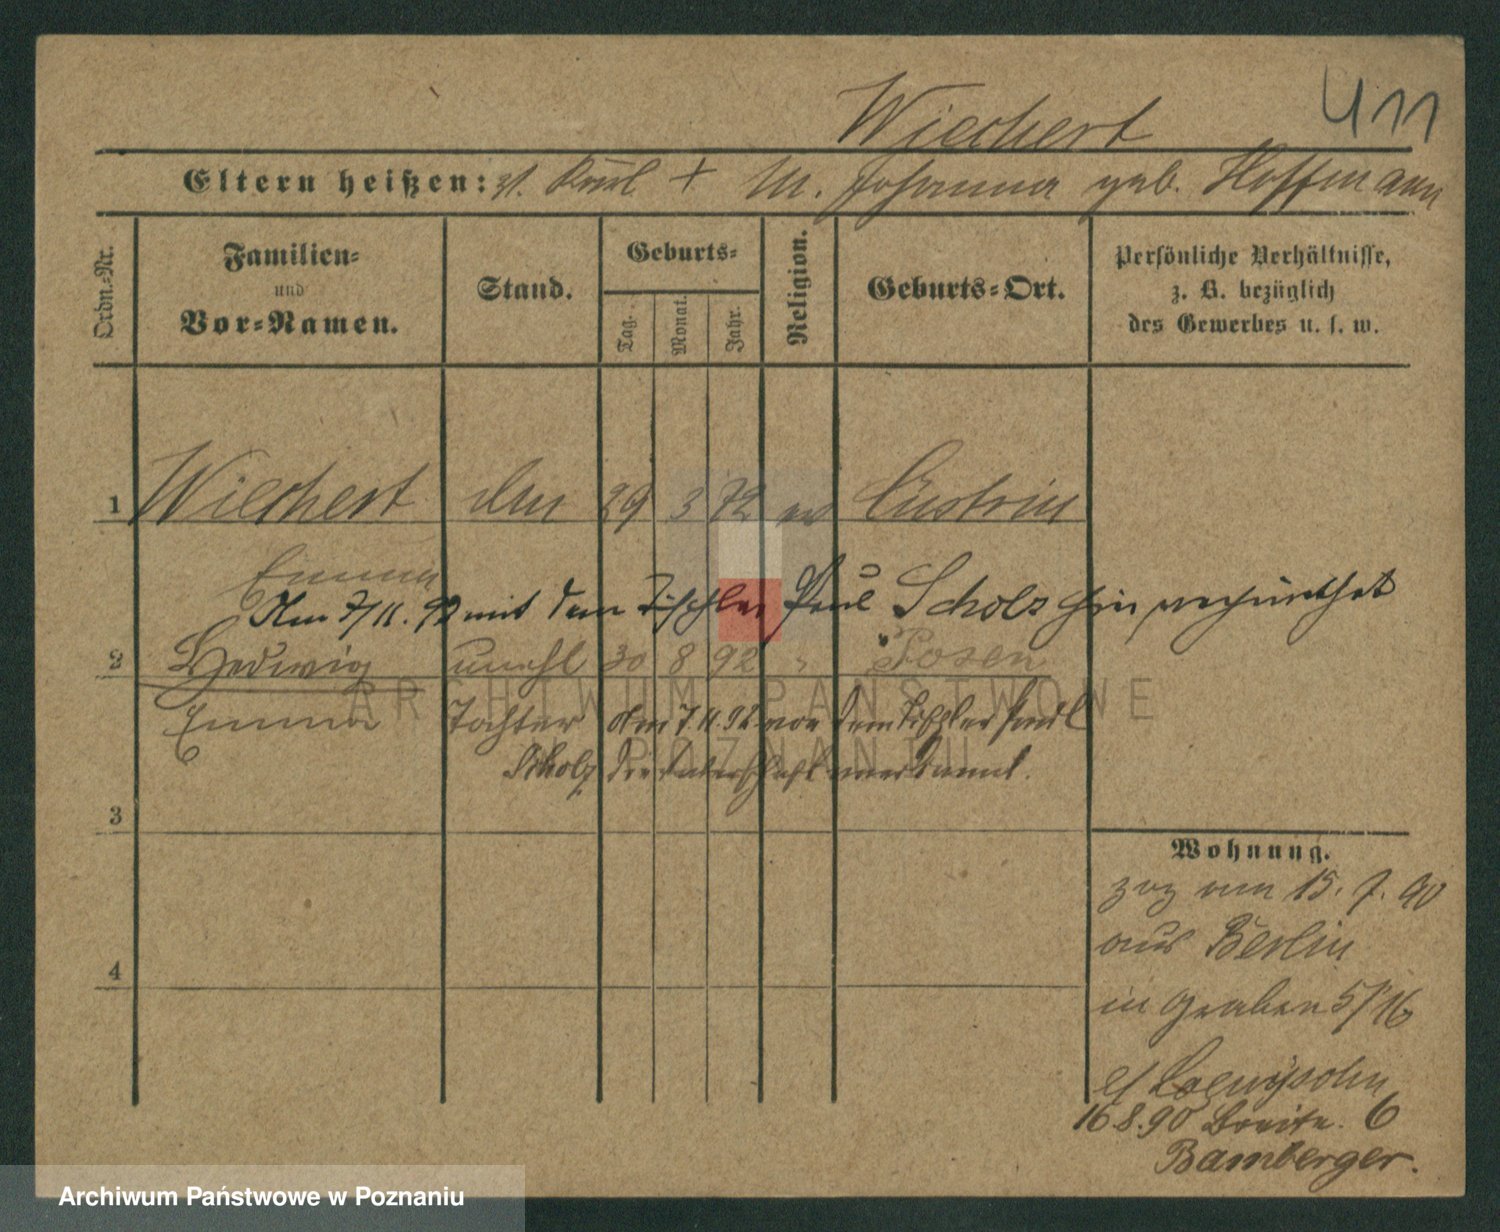 411
Wiechert
Eltern heißen: Karl + M. Johanna geb. Hoffmann
Ordn.-Nr.
Familien-
und
Vor-Namen.
Stand.
Geburts-
Tag.
Monat.
Jahr.
Religion.
Geburts-Ort.
Persönliche Verhältnisse,
z. B. bezüglich
des Gewerbes u. s. w.
1 Wiechert 29 3 72 ev Cüstrin
Emma
Am 7/11. 92 mit dem Tischler Paul Scholz hier verheirathet
2 Hedwig unehl 30 8 92 " Posen
Emma Tochter Am 7.11.92 von dem Tischler Paul
Scholz die Vaterschaft anerkannt.
3
4
Wohnung.
zog am 15. 7. 90
aus Berlin
in Graben 5/16
16.8.90 Breite. 6
Bamberger.
ARCHIWUM PAŃSTWOWE
W POZNANIU
Archiwum Państwowe w Poznaniu